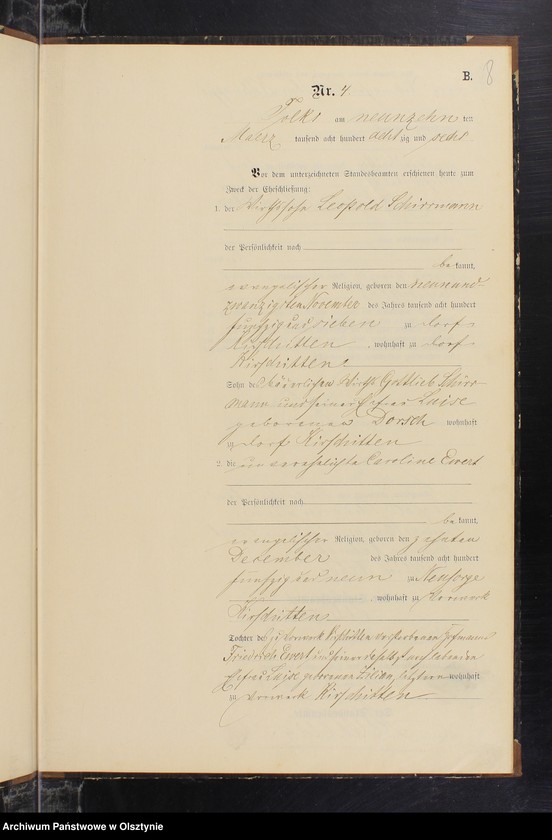 B. 8
Nr. 4
Tolks am neunzehn ten
Maerz tausend acht hundert acht zig und sechs
Vor dem unterzeichneten Standesbeamten erschienen heute zum
Zweck der Eheschließung:
1. der Wirthssohn Leopold Schirrmann
der Persönlichkeit nach
be kannt,
evangelischer Religion, geboren den neunund-
zwanzigsten November des Jahres tausend acht hundert
fünfzig und sieben zu Dorf
Kirschitten, wohnhaft zu Dorf
Kirschitten
Sohn des Wirths Gottlieb Schirr-
mann und seiner Ehefrau Luise
geborenen Dorsch wohnhaft
zu Dorf Kirschitten
2. die unverehelichte Caroline Ewert
der Persönlichkeit nach
be kannt,
evangelischer Religion, geboren den zehnten
Dezember des Jahres tausend acht hundert
fünfzig und neun zu Neusorge
, wohnhaft zu Vorwerk
Kirschitten
Tochter des zu Vorwerk Kirschitten verstorbenen Hofmanns
Friedrich Ewert und seiner daselbst noch lebenden
Ehefrau Luise geborenen letztere wohnhaft
zu Vorwerk Kirschitten
Archiwum Państwowe w Olsztynie